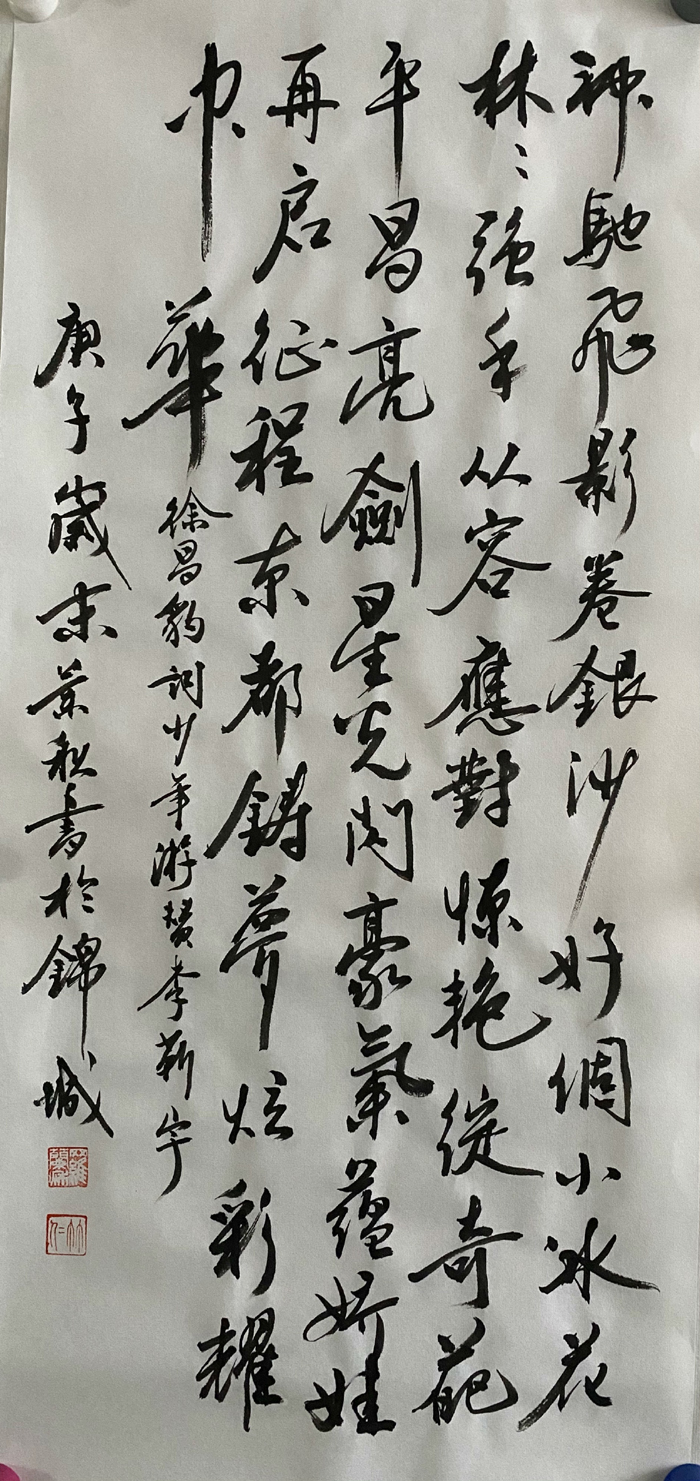 神馳飛影卷銀沙好個小冰花
林〻強手從容應對惊艳綻奇葩
平昌亮劍星光閃豪氣蘊娇娃
再启征程京都鋳夢炫彩耀
中華
徐昌豹詞少年游賛李靳宇
庚子歲末景秋書於錦城
竹仁